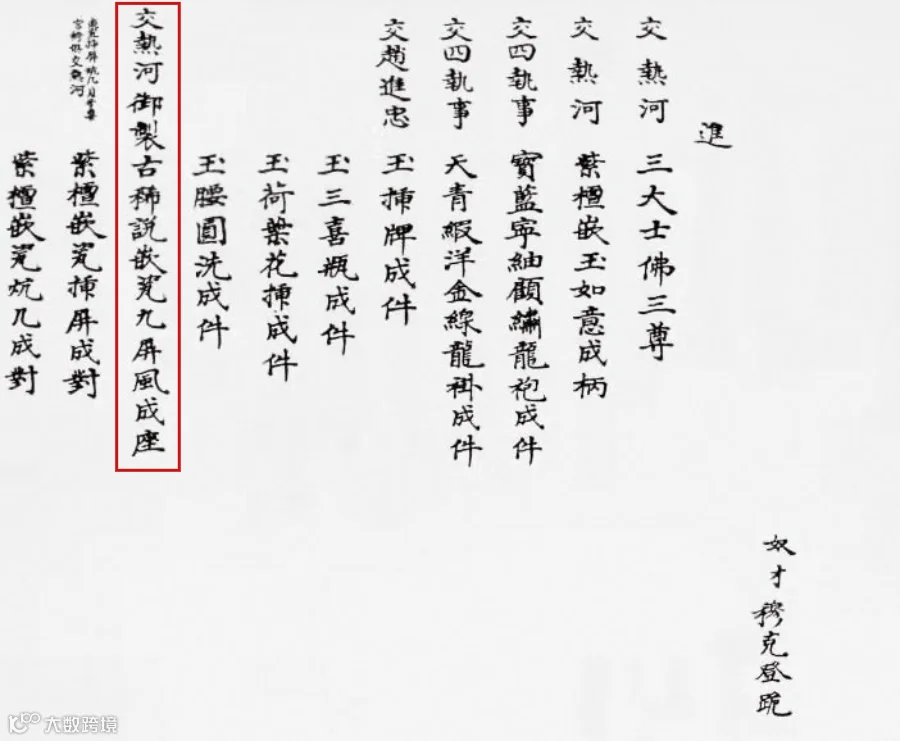 奴才穆克登跪
進
交熱河 三大士佛三尊
交熱河 紫檀嵌玉如意成柄
交四執事 寶藍寧紬顧繡龍袍成件
交四執事 天青緞洋金線龍褂成件
交趙進忠 玉揷牌成件
玉三喜瓶成件
玉荷葉花揷成件
玉腰圓洗成件
交熱河御製古稀說嵌瓷九屏風成座
交熱河
紫檀嵌瓷揷屏成對
紫檀嵌瓷炕几成對
大数跨境